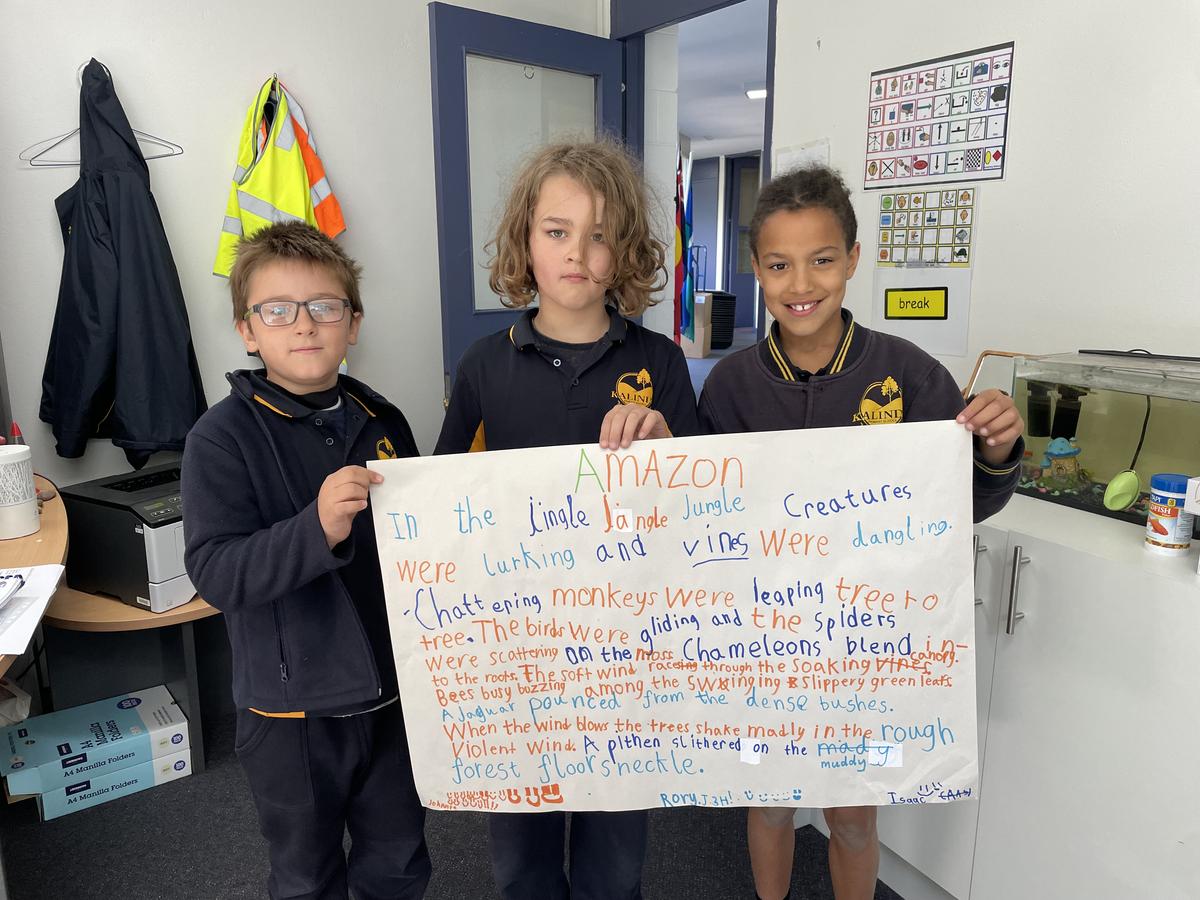 AMAZON
In the Jingle Jangle Jungle Creatures
were lurking and vines were dangling.
Chattering monkeys were leaping tree to
tree. The birds were gliding and the spiders
were scattering on the moss Chameleons blend in-
to the roots. The soft wind racesing through the soaking vines canopy.
Bees busy buzzing among the swinging & slippery green leafs.
A Jaguar pounced from the dense bushes.
When the wind blows the trees shake madly in the rough
Violent wind. A pithen slithered on the mady
muddy
forest floor sneckle.
Rory.J 3H!
Isaac
KALINDA
KALINDA
break
100
A4 Manilla
Folders
A4 Manilla Folders
A4 Manilla Folders
API
GOLDFISH